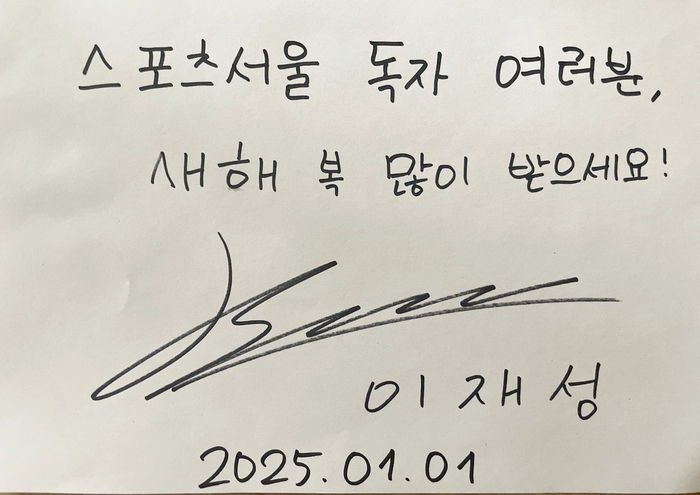 스포츠서울 독자 여러분,
새해 복 많이 받으세요!
이재성
2025.01.01